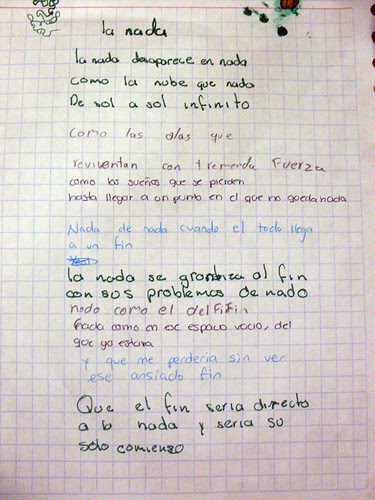 la nada
la nada desaparece en nada
como la nube que nado
De sol a sol infinito
como las olas que
revientan con tremenda Fuerza
como los sueños que se pierden
hasta llegar a un punto en el que no queda nada
Nada de nada cuando el todo llega
a un fin
la nada se al fin
con sus problemas de nado
nado como el delfin
nada como en ese espacio vacio, del
que yo estaria
y que me perderia sin ver
ese ansiado fin
Que el fin seria directo
a la nada y seria su
solo comienzo